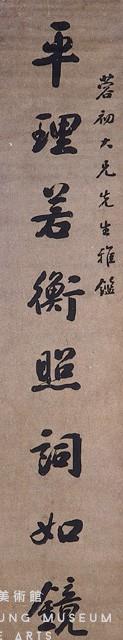 蓉初大兄先生雅鑑
平理若衡照詞如鏡
美術館
UNG MUSEUM
E ARTS